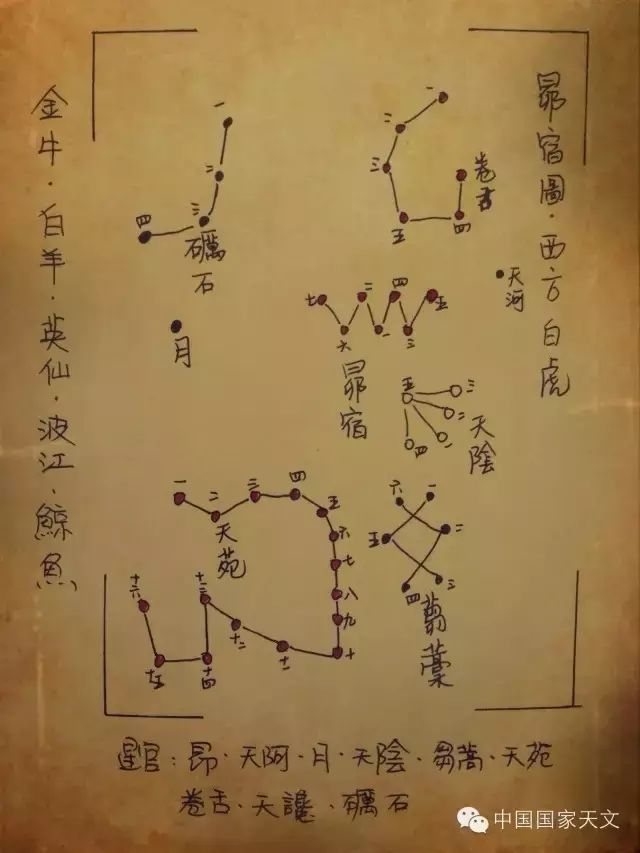 昴宿圖·西方白虎
一
二
三
四
礪石
一
二
三
五
四
卷舌
天河
月
七
二
四
五
六
一
三
昴宿
五
三
二
一
四
天陰
一
二
三
四
五
六
七
八
九
十
十一
十二
十三
十四
十五
十六
天苑
六
一
五
二
四
三
芻藁
金牛·白羊·英仙·波江·鯨魚
星官:昴·天阿·月·天陰·芻蒿·天苑
卷舌·天讒·礪石
中国国家天文